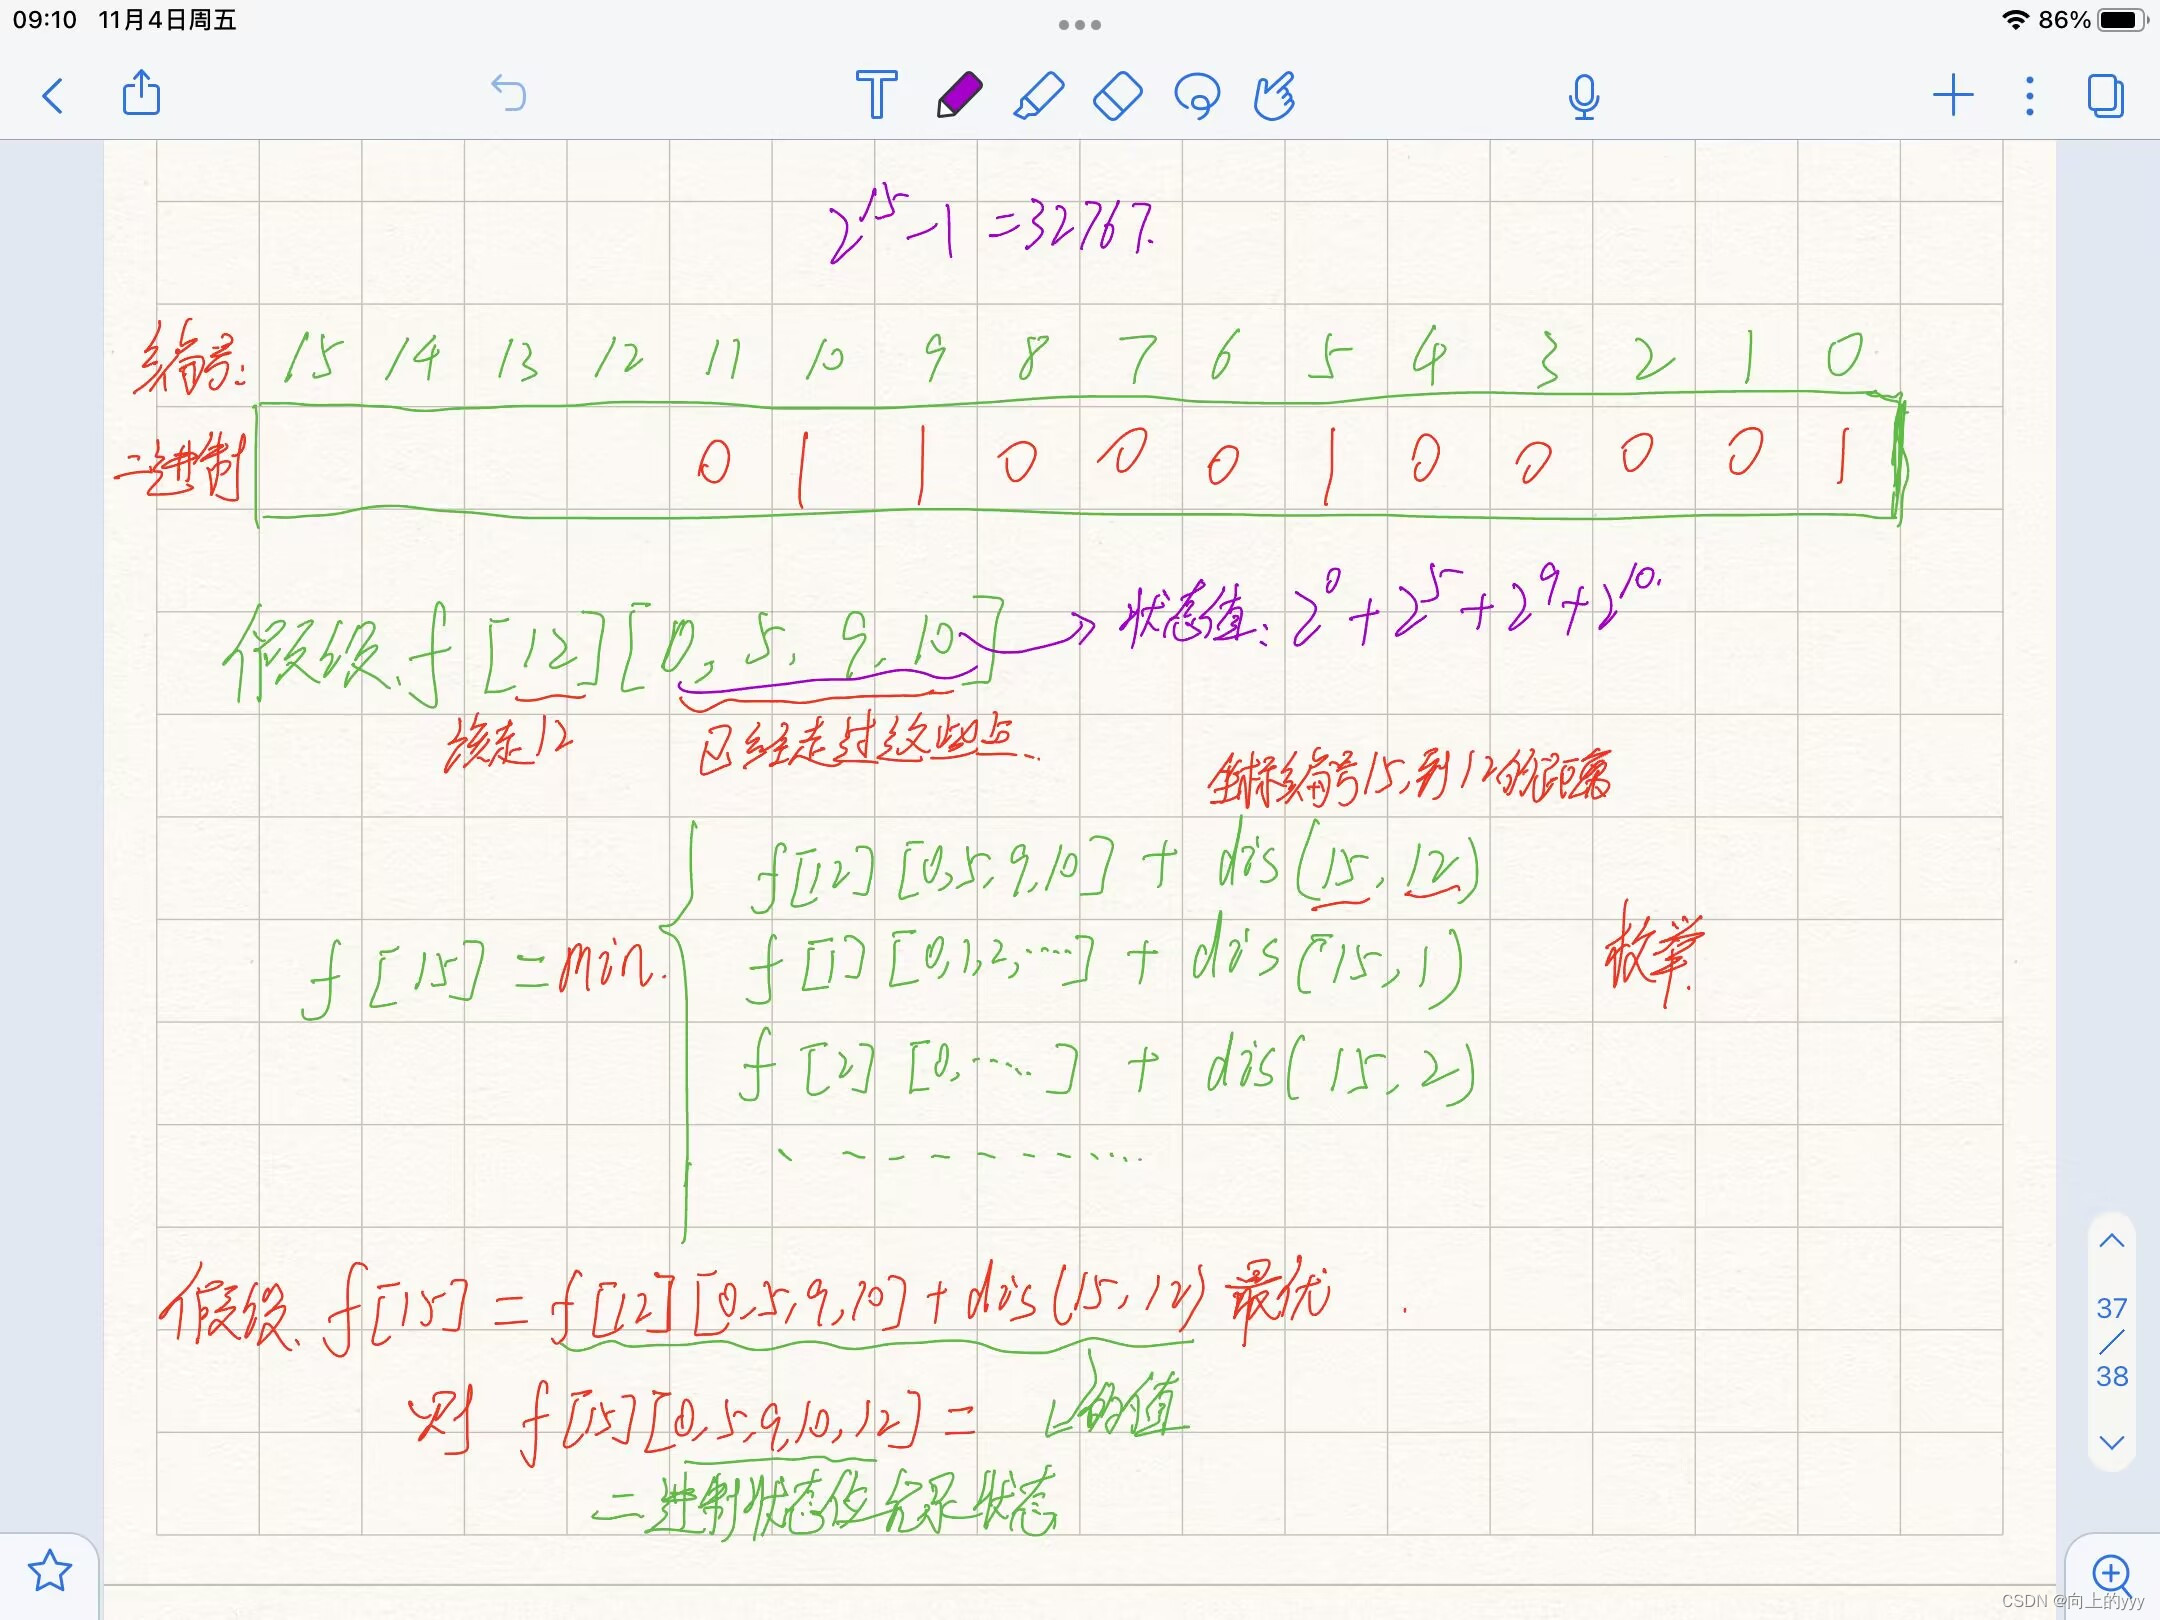 09:10 11月4日周五 86%
2^15-1=32767.
编号: 15 14 13 12 11 10 9 8 7 6 5 4 3 2 1 0
二进制 0 1 1 0 0 0 1 0 0 0 0 1
假设.f[12][0,5,9,10] → 状态值:2^0+2^5+2^9+2^10.
该走12 已经走过这些点.
坐标编号15,到12的距离
f[12][0,5,9,10] + dis(15,12)
f[15]=min. f[1][0,1,2,……] + dis(15,1) 枚举.
f[2][0,……] + dis(15,2)
假设.f[15]=f[12][0,5,9,10]+dis(15,12)最优
则 f[15][0,5,9,10,12]= 的值
二进制状态位 状态
37
/
38
CSDN @向上的yyy